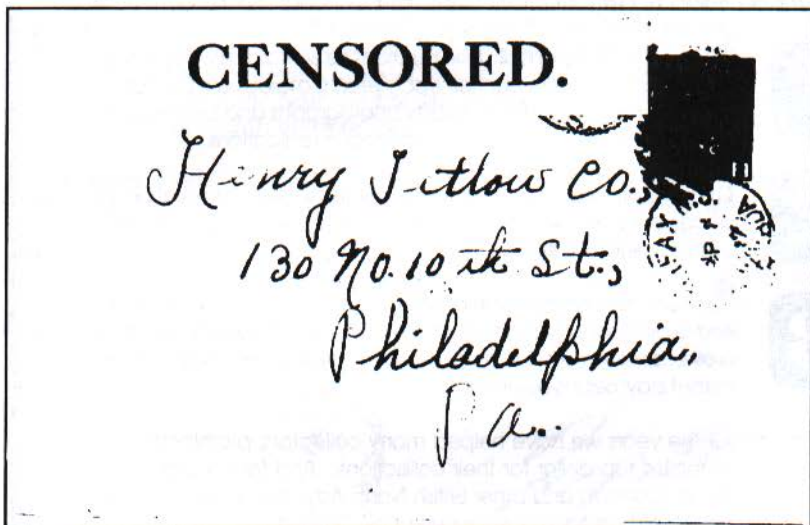 CENSORED.
Henry Tetlow Co.,
130 No. 10th St.,
Philadelphia,
Pa.